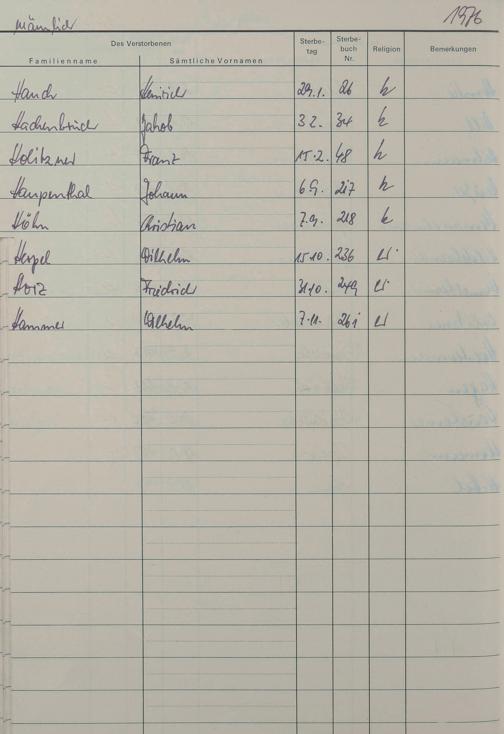 männlich 1976
Des Verstorbenen Sterbe-tag Sterbe-buch Nr. Religion Bemerkungen
Familienname Sämtliche Vornamen
Hauch Heinrich 29.1. 26 k
Hachenbruch Jakob 3 2. 34 k
Holitzner Franz 15.2. 48 k
Haupenthal Johann 6.9. 217 k
Höhn Christian 7.9. 218 k
Herpel Wilhelm 15.10. 236 ev.
Friedrich 31.10. 249 ev.
Hammer Wilhelm 7.11. 261 ev